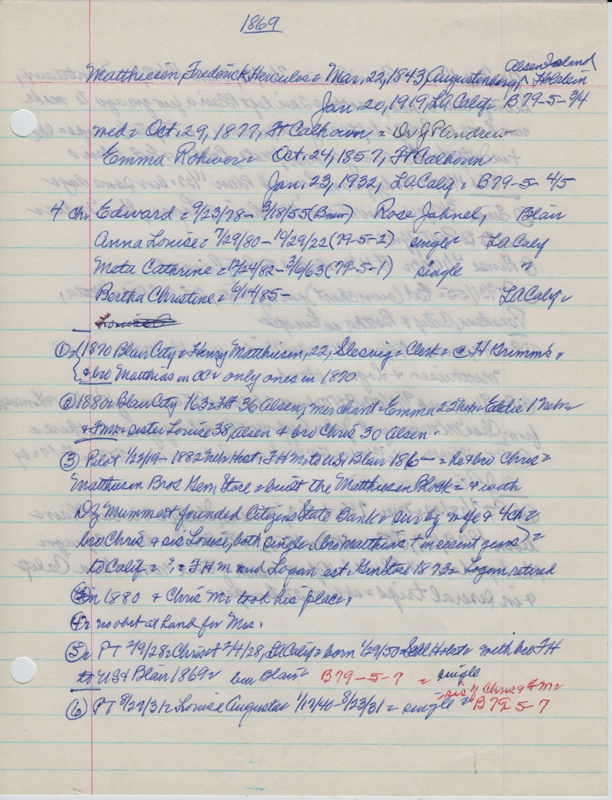 1869
Alsen Island
Matthiesen, Frederick Hercules = Mar. 22, 1843, Augustenberg, Holstein
Jan. 20, 1919, LA Calif = B79-5-3/4
med = Oct. 29, 1877, Ft Calhoun =
Emma Rohwer = Oct. 24, 1857, Ft Calhoun
Jan. 23, 1932, LA Calif = B79-5-4/5
4 ch = Edward = 9/23/78- 3/18/55 Rose Jahnel, Blair
Anna Louise = 7/29/80 - 10/29/22 (79-5-2) single LA Calif
Meta Catherine = 12/24/82-3/6/63 (79-5-1) single "
Bertha Christine = 9/14/85- LA Calif
① = 1870 Blair City = Henry Matthiesen, 22, Slesvig = Clerk = @ H Grimm's,
& bro Matthias in OC = only ones in 1870
② 1880 = Blair City 163 = FH 36 Alsen, merchant = Emma 23 Neb = Eddie 1 Neb =
sister Louise 38 Alsen & bro Chris 30 Alsen.
③ Pilot 1/22/19 = FH M to US & Blair 186 - = he & bro Chris =
Matthiesen Bros Gem Store = built the Matthiesen Block = & with
DZ Mummert founded Citizens State Bank = sur by wife & 4 ch =
bro Chris & sis Louise, both single, (bro Matthias + in recent years) =
to Calif = ? = FHM and Logan est. Gen Store 1873 = Logan retired
in 1880 & Chris M. took his place,
4 = no obit at hand for Mrs.
⑤ = PT 2/9/28 = Chris + 2/4/28, LA Calif = born 1/29/50 with bro FH
to US & Blair 1869 = bur Blair = B79-5-7 = single
= sis of Chris & FM =
⑥ PT 8/27/31 = Louise Augusta = 1/17/40-8/23/31 = single = B79-5-7